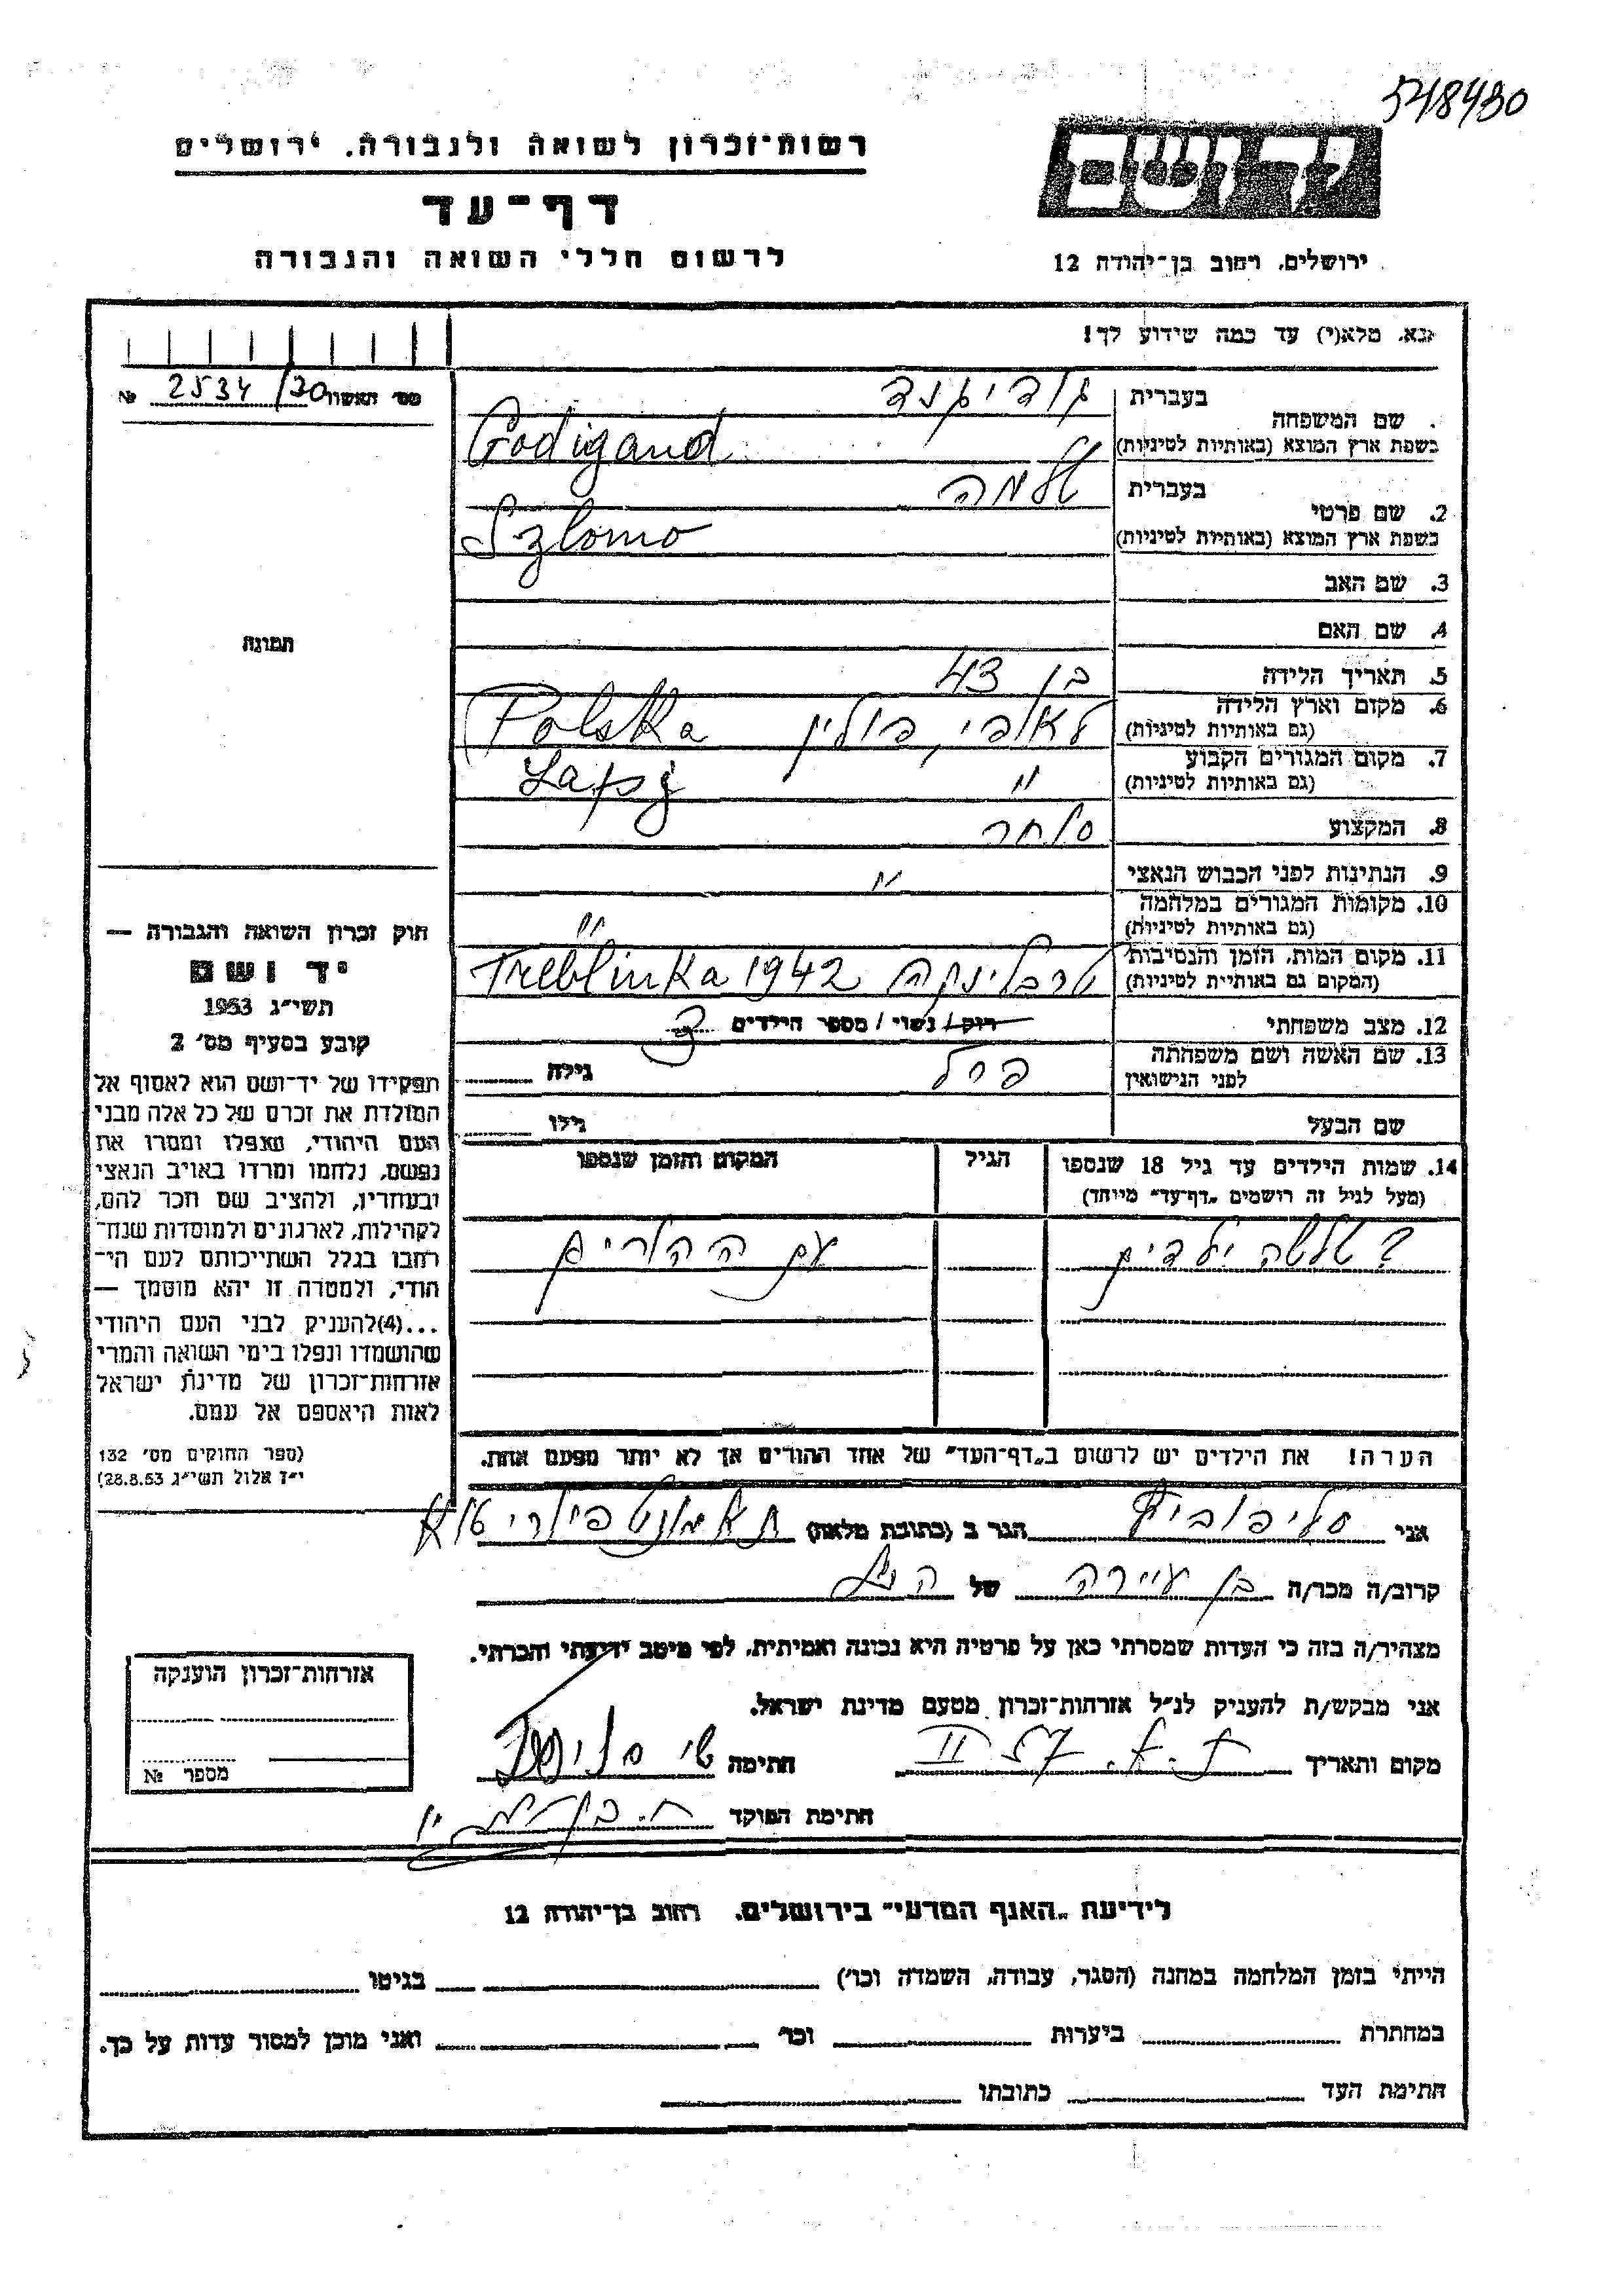 548430
רשות־זכרון לשואה ולגבורה. ירושלים
דף־עד
לרשום חללי השואה והגבורה
יד ושם
ירושלים. רחוב בן־יהודה 12
נא. מלא(י) עד כמה שידוע לך!
מס׳ האשור 2534/30 №
תמונה
שם המשפחה
בעברית גודיגנד
בשפת ארץ המוצא (באותיות לטיניות) Godigand
2. שם פרטי
בעברית שלמה
בשפת ארץ המוצא (באותיות לטיניות) Szlomo
3. שם האב
4. שם האם
5. תאריך הלידה בן 43
6. מקום וארץ הלידה
(גם באותיות לטיניות) לאפי, פולין Polska
7. מקום המגורים הקבוע
(גם באותיות לטיניות) " Łapy
8. המקצוע סוחר
9. הנתינות לפני הכבוש הנאצי "
10. מקומות המגורים במלחמה
(גם באותיות לטיניות) "
11. מקום המות, הזמן והנסיבות
(המקום גם באותיות לטיניות) טרבלינקה Treblinka 1942
12. מצב משפחתי רווק / נשוי / מספר הילדים 3
13. שם האשה ושם משפחתה
לפני הנישואין פרל גילה
שם הבעל גילו
14. שמות הילדים עד גיל 18 שנספו
(מעל לגיל זה רושמים "דף־עד" מיוחד)
הגיל
המקום והזמן שנספו
? שלשה ילדים עם ההורים
הערה! את הילדים יש לרשום ב"דף־העד" של אחד ההורים אך לא יותר מפעם אחת.
חוק זכרון השואה והגבורה —
יד ושם
תשי״ג 1953
קובע בסעיף מס׳ 2
תפקידו של יד־ושם הוא לאסוף אל
המולדת את זכרם של כל אלה מבני
העם היהודי, שנפלו ומסרו את
נפשם, נלחמו ומרדו באויב הנאצי
ובעוזריו, ולהציב שם וזכר להם,
לקהילות, לארגונים ולמוסדות שנח־
רבו בגלל השתייכותם לעם הי־
הודי, ולמטרה זו יהא מוסמך —
...(4)להעניק לבני העם היהודי
שהושמדו ונפלו בימי השואה והמרי
אזרחות־זכרון של מדינת ישראל
לאות היאספם אל עמם.
(ספר החוקים מס׳ 132
י״ז אלול תשי״ג 28.8.53)
אני הגר ב (כתובת מלאה)
קרוב/ה מכר/ה בן עיירה של הנ״ל
מצהיר/ה בזה כי העדות שמסרתי כאן על פרטיה היא נכונה ואמיתית, לפי מיטב ידיעתי והכרתי.
אני מבקש/ת להעניק לנ״ל אזרחות־זכרון מטעם מדינת ישראל.
מקום ותאריך ת.א. 57 II חתימה
חתימת הפוקד
אזרחות־זכרון הוענקה
מספר №
לידיעת "האגף המדעי" בירושלים. רחוב בן־יהודה 12
הייתי בזמן המלחמה במחנה (הסגר, עבודה, השמדה וכו׳) בגיטו
במחתרת ביערות וכו׳ ואני מוכן למסור עדות על כך.
חתימת העד כתובתו